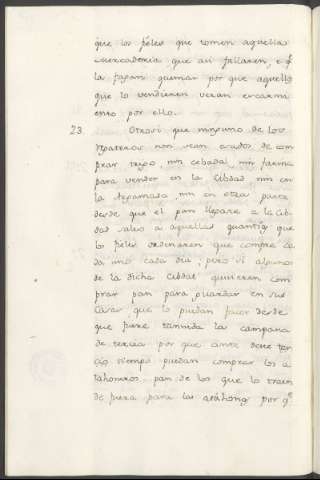 que los fieles que tomen aquellas
mercaderia que asi fallaren, e q
la fagan quemar por que aquello
que lo vendieren vean escarmi
ento por ello.
23. Otrosi que ninguno de los
non sean osados de com
prar trigo, nin cebada, nin farina
para vender en la Cibdad nin en
la nin en otra parte
desde que el pan llegare a la Cib
dad salvo a aquellas quantias que
los fieles ordenaren que compre ca
da uno cada dia; pero si algunos
de la dicha Cibdad quisieren com
prar pan para guardar en sus
Casas, que lo puedan facer desde
que fuere tannida la campana
de tercia por que ante deste ter
cio tiempo puedan comprar los a
tahoneros pan de los que lo traen
de fuera para las atahonas por q